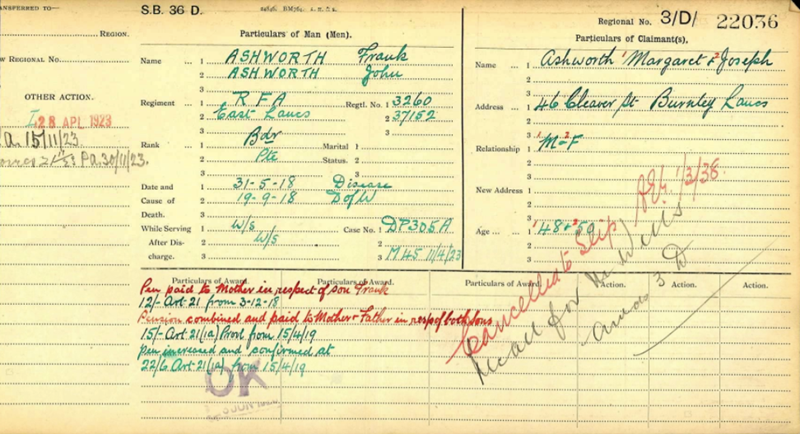 ANSFERRED TO—
REGION.
W REGIONAL No.
OTHER ACTION.
28 APL 1923
15/11/23
PA. 30/11/23.
S.B. 36 D.
Particulars of Man (Men).
Name ... 1 ASHWORTH Frank
2 ASHWORTH John
3
Regiment ... 1 RFA Regtl. No. 1 3260
2 East Lancs 2 37152
3 3
Rank ... 1 Bdr Marital 1
2 Pte Status. 2
3 3
Date and 1 31-5-18 Disease
Cause of 2 19-9-18 D of W
Death. 3
While Serving 1 W/S Case No. 1 DP305A
After Dis- 2 W/S 2
charge. 3 3 M45 11/4/23
Regional No. 3/D/ 22036
Particulars of Claimant(s).
Name ... 1 Ashworth 1 Margaret & 2 Joseph
2
3
Address ... 1 46 Cleaver St Burnley Lancs
2
3
Relationship 1 1 M & 2 F
2
3
New Address 1
2
3
Age ... 1 1 48 & 2 50
2
3
Cancelled to Slip 1/3/38.
Recall for Mr Wells
3 D
Particulars of Award. Particulars of Award. Action. Action. Action.
Pen paid to Mother in respect of son Frank
12/- Art 21 from 3-12-18
Pension combined and paid to Mother & Father in resp of both sons
15/- Art 21(1a) Provl from 15/4/19
Pen increased and confirmed at
22/6 Art 21(1a) from 15/4/19
OK